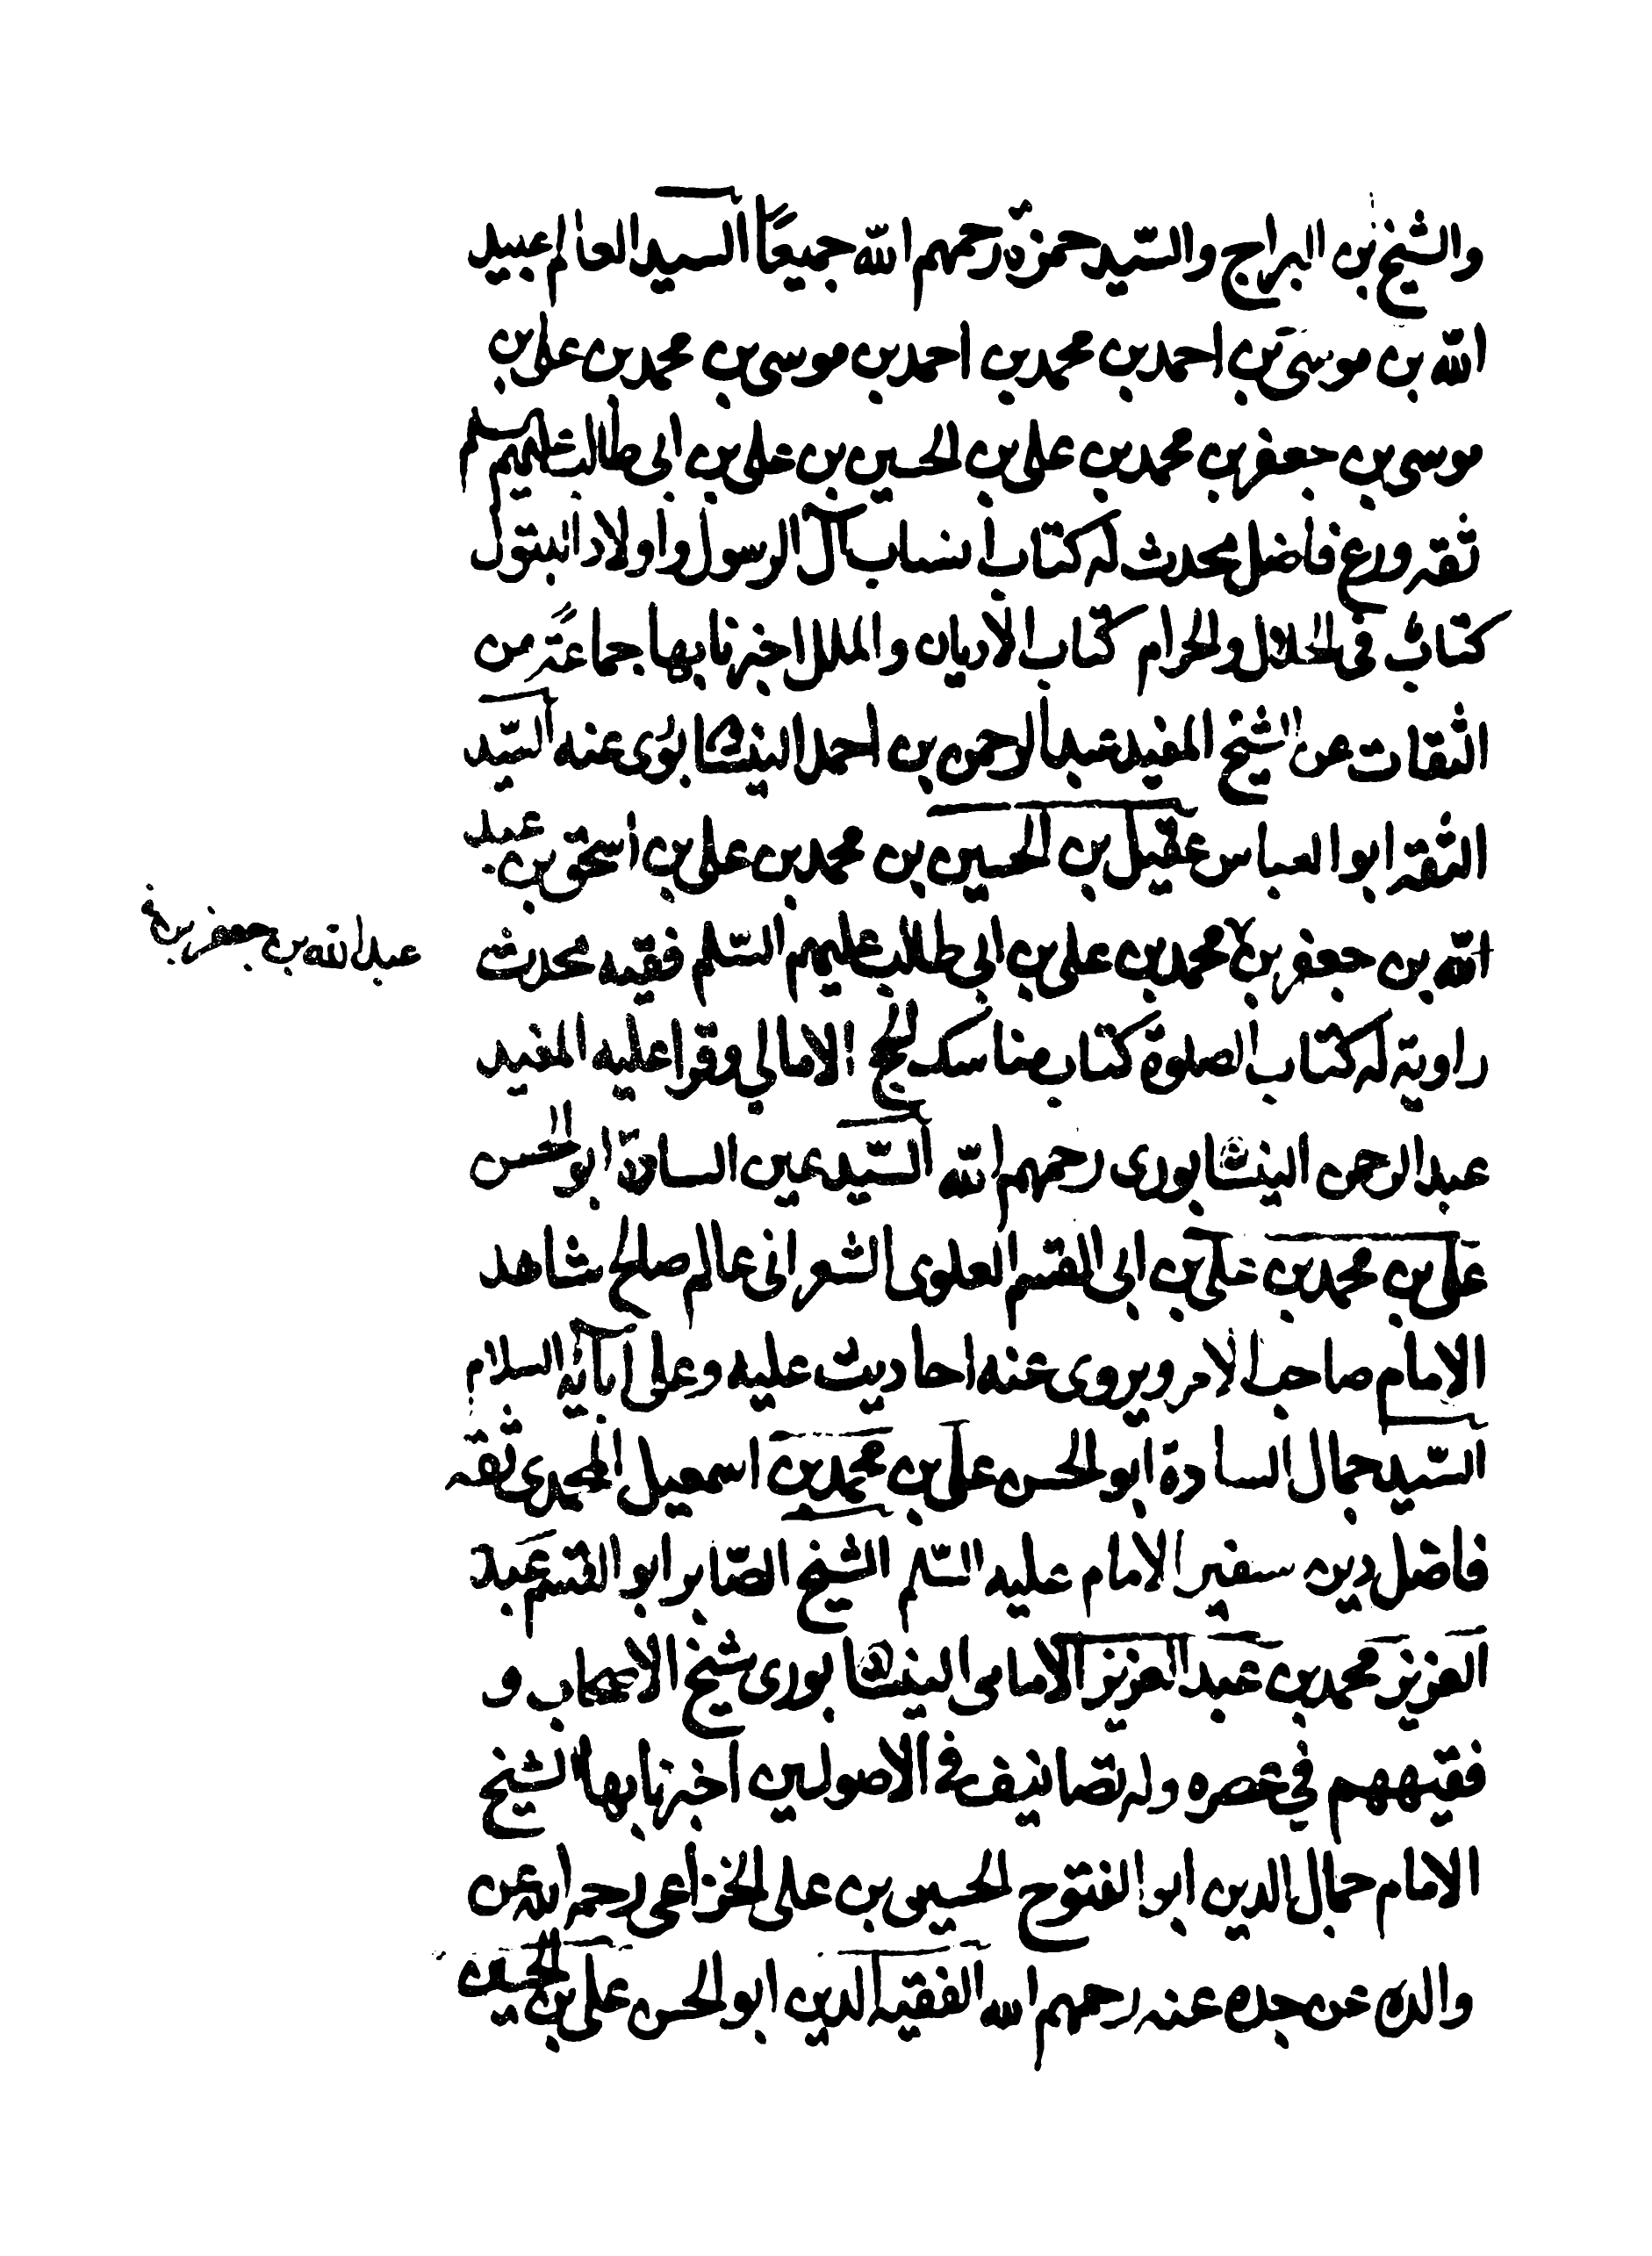 والشيخ بن البراج والسّيد حمزة رحمهم الله جميعًا السيد العالم عبيد
الله بن موسى بن احمد بن محمد بن احمد بن موسى بن محمد بن على بن
موسى بن جعفر بن محمد بن على بن الحسين بن على بن ابى طالب عليهم السلم
ثقه ورع فاضل محدث له كتاب انساب آل الرسول واولاد البتول
كتاب فى الحلال والحرام كتاب الاديان والملل اخبرنا بها جماعة من
الثقات عن الشيخ المفيد عبد الرحمن بن احمد النيشابورى عنه السّيد
الثقه ابو العباس عقيل بن الحسين بن محمد بن على بن اسحق بن عبد
الله بن جعفر بن محمد بن على بن ابى طالب عليهم السّلم فقيه محدث
عبد الله بن جعفر بن
راوية له كتاب الصلوة كتاب مناسك الحج الامالى وقرا عليه المفيد
عبد الرحمن النيشابورى رحمهم الله السّيد عين السادة ابو الحسن
على بن محمد بن على بن ابى القسم العلوى الشعرانى عالم صالح شاهد
الامام صاحب الامر ويروى عنه احاديث عليه وعلى آبائه السلام
السّيد جمال السادة ابو الحسن على بن محمد بن اسمعيل المحمدى ثقه
فاضل دين سفير الامام عليه السّلم الشيخ الصّابر ابو القسم عبد
العزيز محمد بن عبد العزيز الامامى النيشابورى شيخ الاصحاب و
فقيههم فى عصره وله تصانيف فى الاصولين اخبرنا بها الشيخ
الامام جمال الدين ابو الفتوح الحسين بن على الخزاعى رحمه الله عن
والده عن جده عنه رحمهم الله الفقيه الدين ابو الحسن على بن الحسين